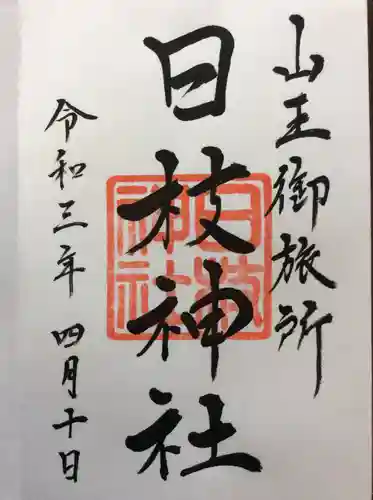 山王御旅所
日枝神社
令和三年 四月十日
日枝
神社